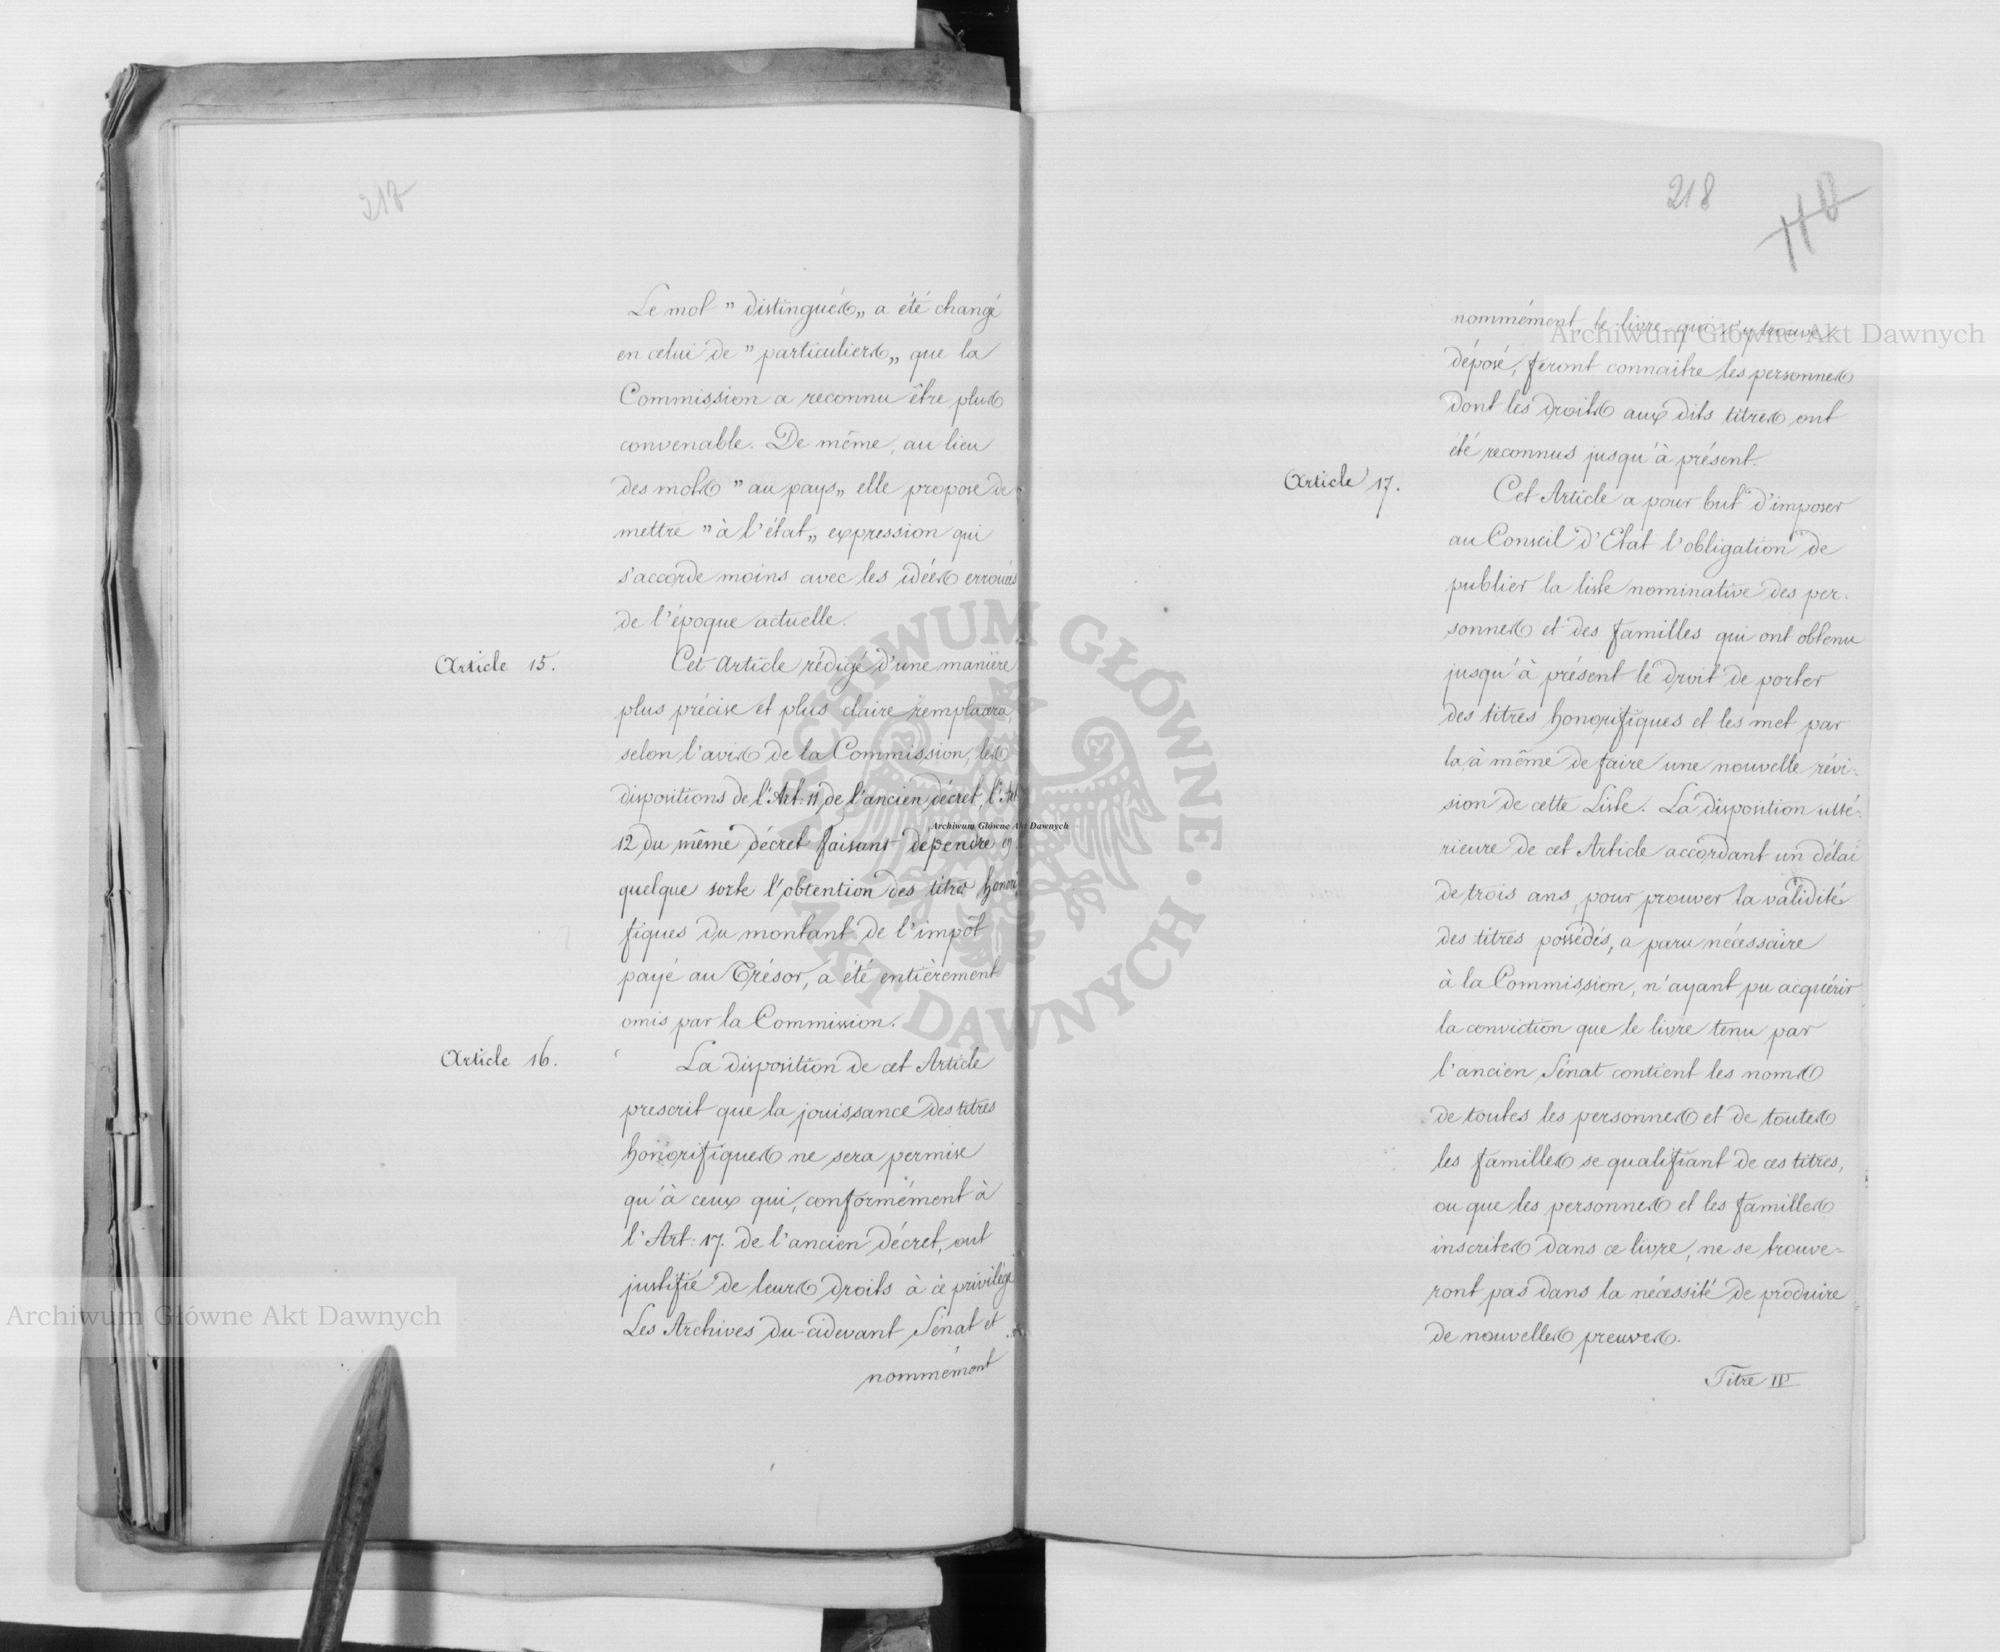 217
Le mot " distingués„ a été changé
en celui de " particuliers„ que la
Commission a reconnu être plus
convenable. De même, au lieu
des mots " au pays„ elle propose de
mettre " à l'état„ expression qui
s'accorde moins avec les idées erronées
de l'époque actuelle.
Article 15.
Cet Article rédigé d'une manière
plus précise et plus claire remplacera,
selon l'avis de la Commission, les
dispositions de l'Art: 11 de l'ancien décret, l'Art
12 du même décret faisant dépendre en
quelque sorte l'obtention des titres honori
fiques du montant de l'impôt
payé au Trésor, a été entièrement
omis par la Commission.
Article 16.
La disposition de cet Article
prescrit que la jouissance des titres
honorifiques ne sera permise
qu'à ceux qui, conformément à
l'Art: 17. de l'ancien décret, ont
justifié de leurs droits à ce privilège
Les Archives du-cidevant Sénat et
nommément
218
110
nommément, le livre qui s'y trouve
déposé, feront connaitre les personnes
dont les droits aux dits titres ont
été reconnus jusqu'à présent.
Article 17.
Cet Article a pour but d'imposer
au Conseil d'Etat l'obligation de
publier la liste nominative des per-
sonnes et des familles qui ont obtenu
jusqu'à présent le droit de porter
des titres honorifiques et les met par
là, à même de faire une nouvelle révi-
sion de cette Liste. La disposition ulté-
rieure de cet Article accordant un délai
de trois ans, pour prouver la validité
des titres possédés, a paru nécessaire
à la Commission, n'ayant pu acquérir
la conviction que le livre tenu par
l'ancien Sénat contient les noms
de toutes les personnes et de toutes
les familles se qualifiant de ces titres,
ou que les personnes et les familles
inscrites dans ce livre, ne se trouve-
ront pas dans la nécessité de produire
de nouvelles preuves.
Titre IV
Archiwum Główne Akt Dawnych
Archiwum Główne Akt Dawnych
Archiwum Główne Akt Dawnych
ARCHIWUM GŁÓWNE · AKT DAWNYCH ·